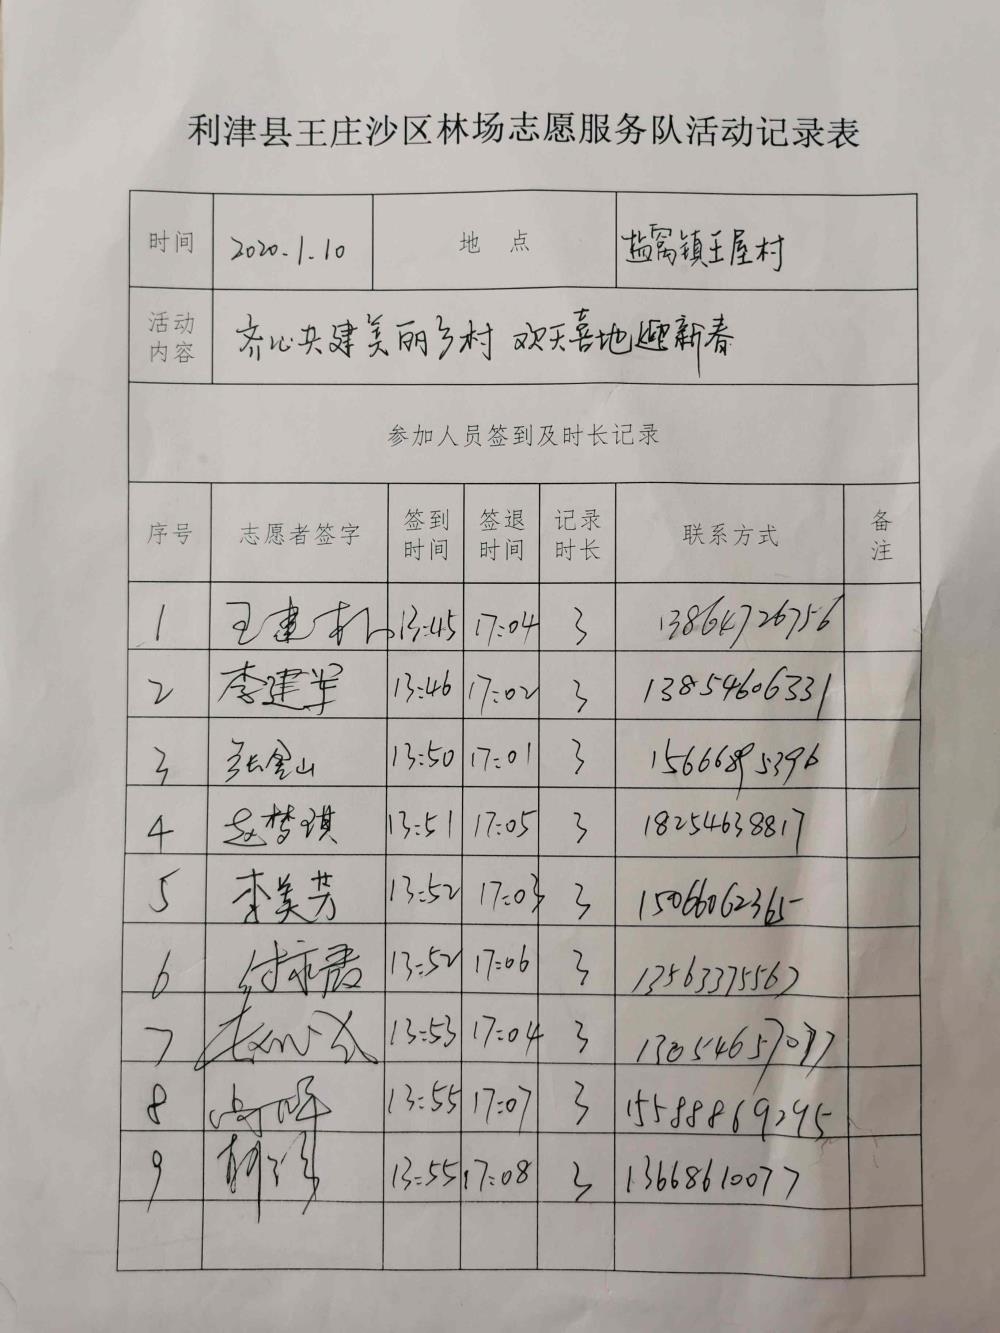 利津县王庄沙区林场志愿服务队活动记录表
时间 2020.1.10 地 点 盐窝镇王屋村
活动内容 齐心共建美丽乡村 欢天喜地迎新春
参加人员签到及时长记录
序号 志愿者签字 签到时间 签退时间 记录时长 联系方式 备注
1 王建 13:45 17:04 3 13864726756
2 李建军 13:46 17:02 3 13854606331
3 张金山 13:50 17:01 3 15666895396
4 赵梦琪 13:51 17:05 3 18254638817
5 李美芳 13:52 17:03 3 15066062365
6 付永霞 13:52 17:06 3 13563375567
7 13:53 17:04 3
8 13:55 17:07 3 15588869295
9 13:55 17:08 3 13668610077